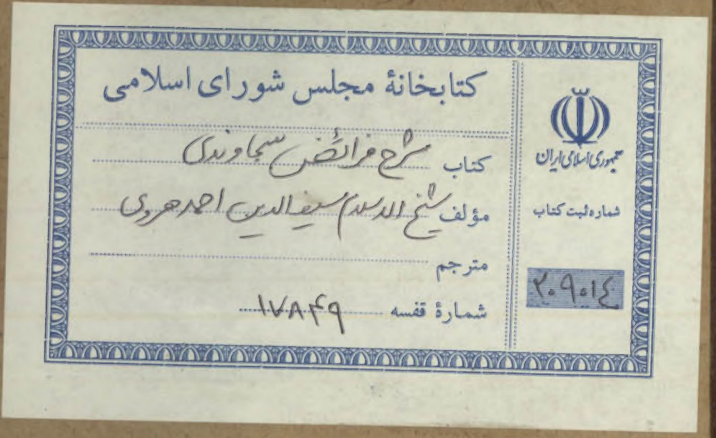 کتابخانهٔ مجلس شورای اسلامی
کتاب شرح فرائض سجاوندی
مؤلف شیخ الاسلام سیف الدین احمد هروی
مترجم
شمارهٔ قفسه ۱۷۸۴۹
جمهوری اسلامی ایران
شماره ثبت کتاب
۲۰۹۰۱۴